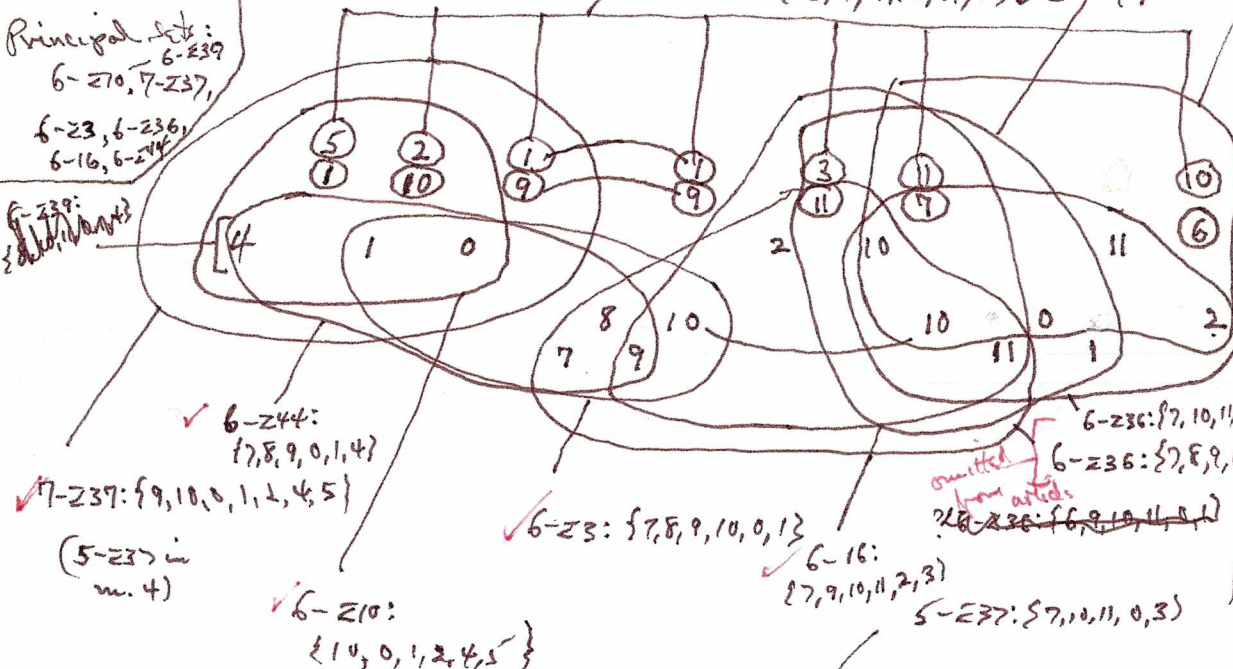 Principal sets:
6-Z10, 6-Z39
7-Z37,
6-Z3, 6-Z36,
6-16, 6-Z44
6-Z39:
5 2 1 1 3 11 10
1 10 9 9 11 7 6
4 1 0 2 10 11
8 10 10 0 2
7 9 11 1
✓ 6-Z44:
{7,8,9,0,1,4}
✓ 7-Z37: {9,10,0,1,2,4,5}
(5-Z37 in
m. 4)
✓ 6-Z10:
{10,0,1,2,4,5}
✓ 6-Z3: {7,8,9,10,0,1}
✓ 6-16:
{7,9,10,11,2,3}
6-Z36: {7,10,11,
6-Z36: {7,8,9,
omitted
from article
6-Z36: {6,9,10,11,0,1}
5-Z37: {7,10,11,0,3}